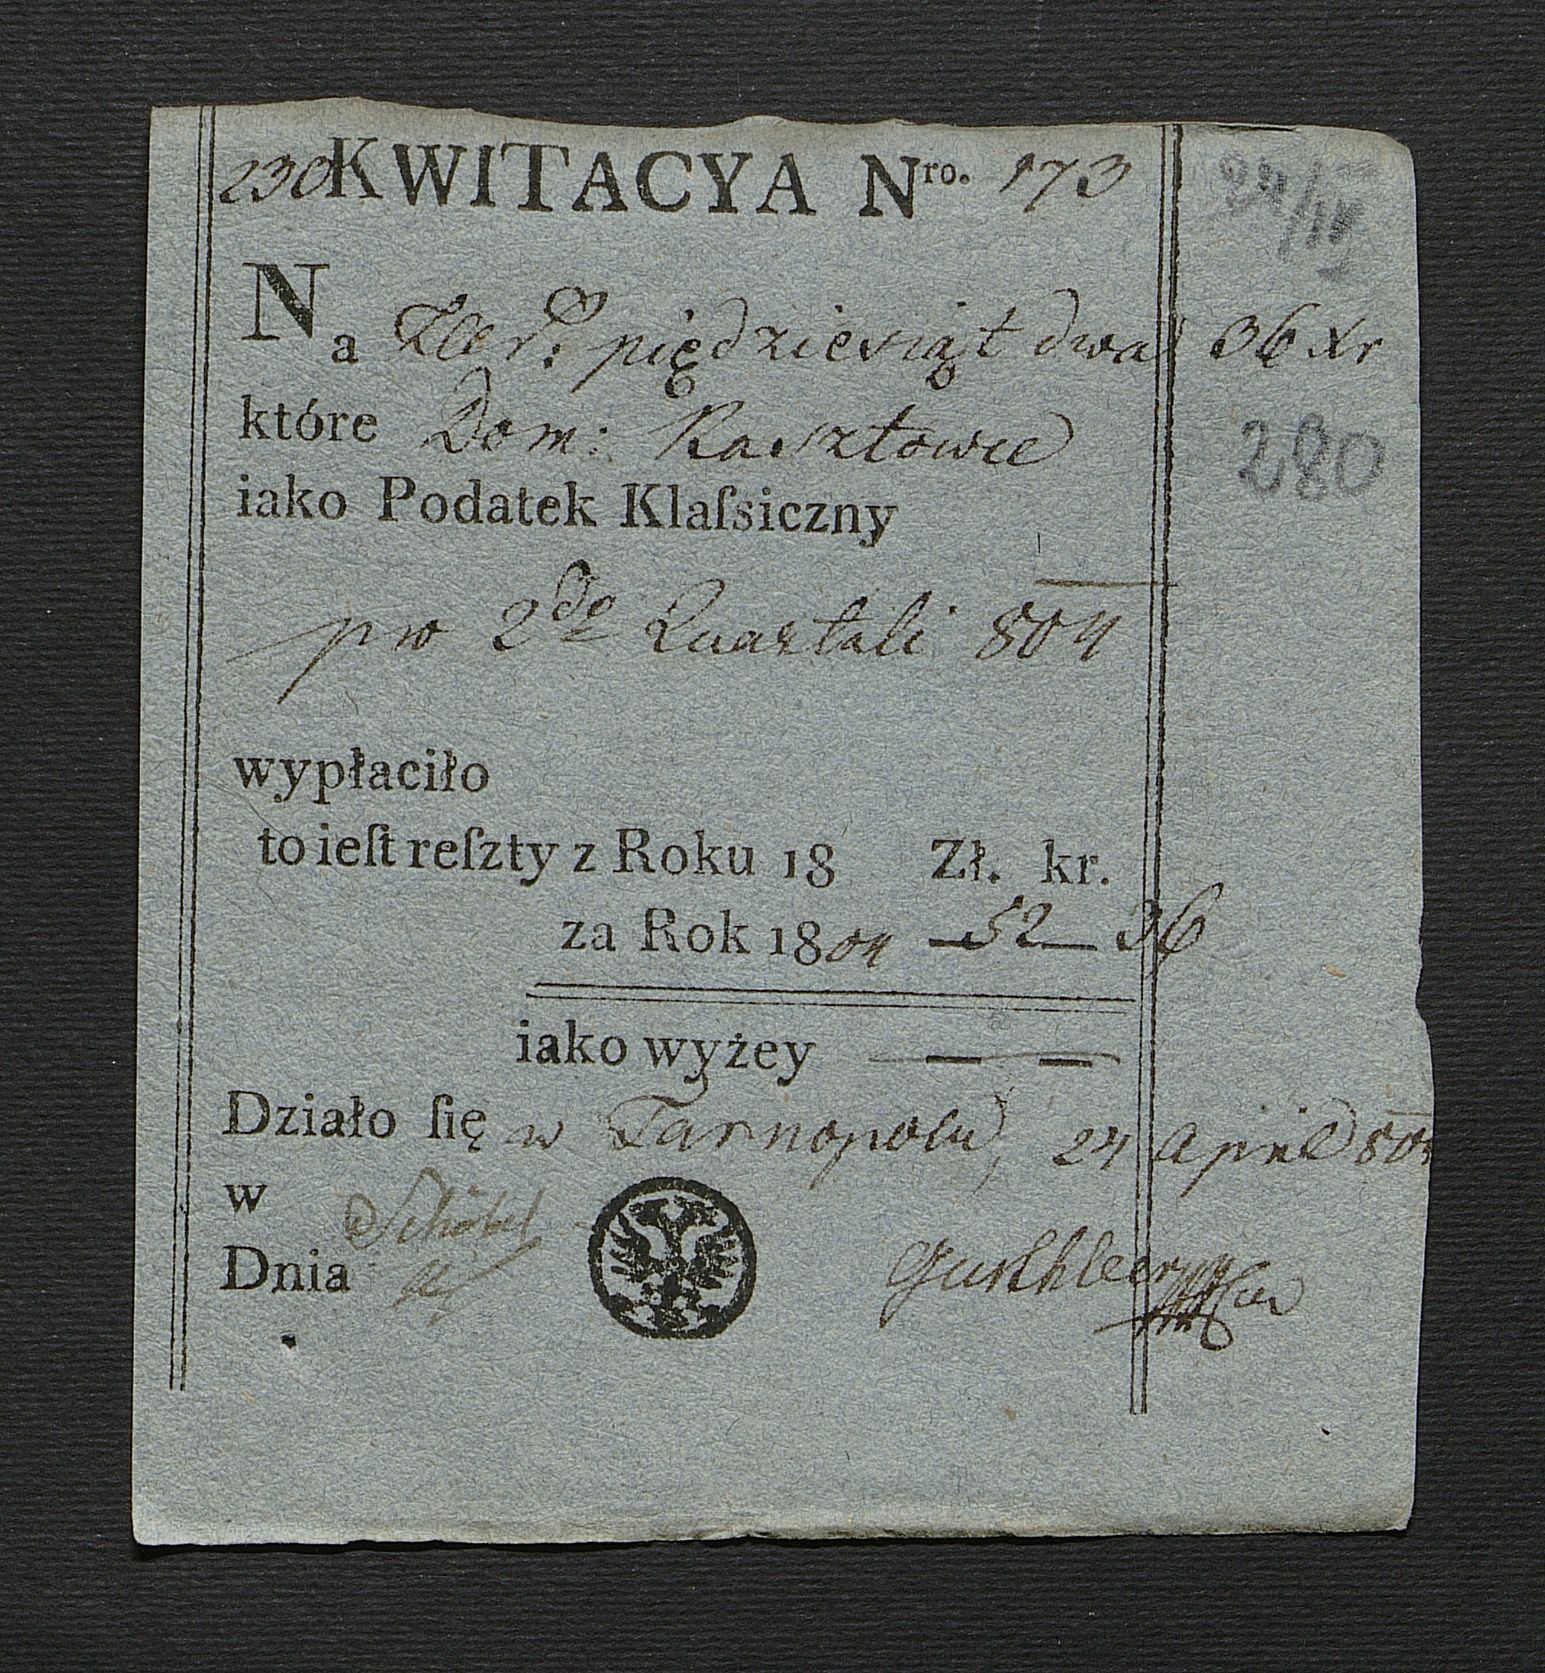 230 KWITACYA Nro. 173
Na Złr. piędziesiąt dwa 36 Xr
które Dom: Kasztowce
280
iako Podatek Klaſsiczny
pro 2do Quartali 804
wypłaciło
to ieſt reſzty z Roku 18 Zł. kr.
za Rok 1804 — 52 — 36
iako wyżey — —
Działo ſię w Tarnopolu, 24 April 804
w
Dnia